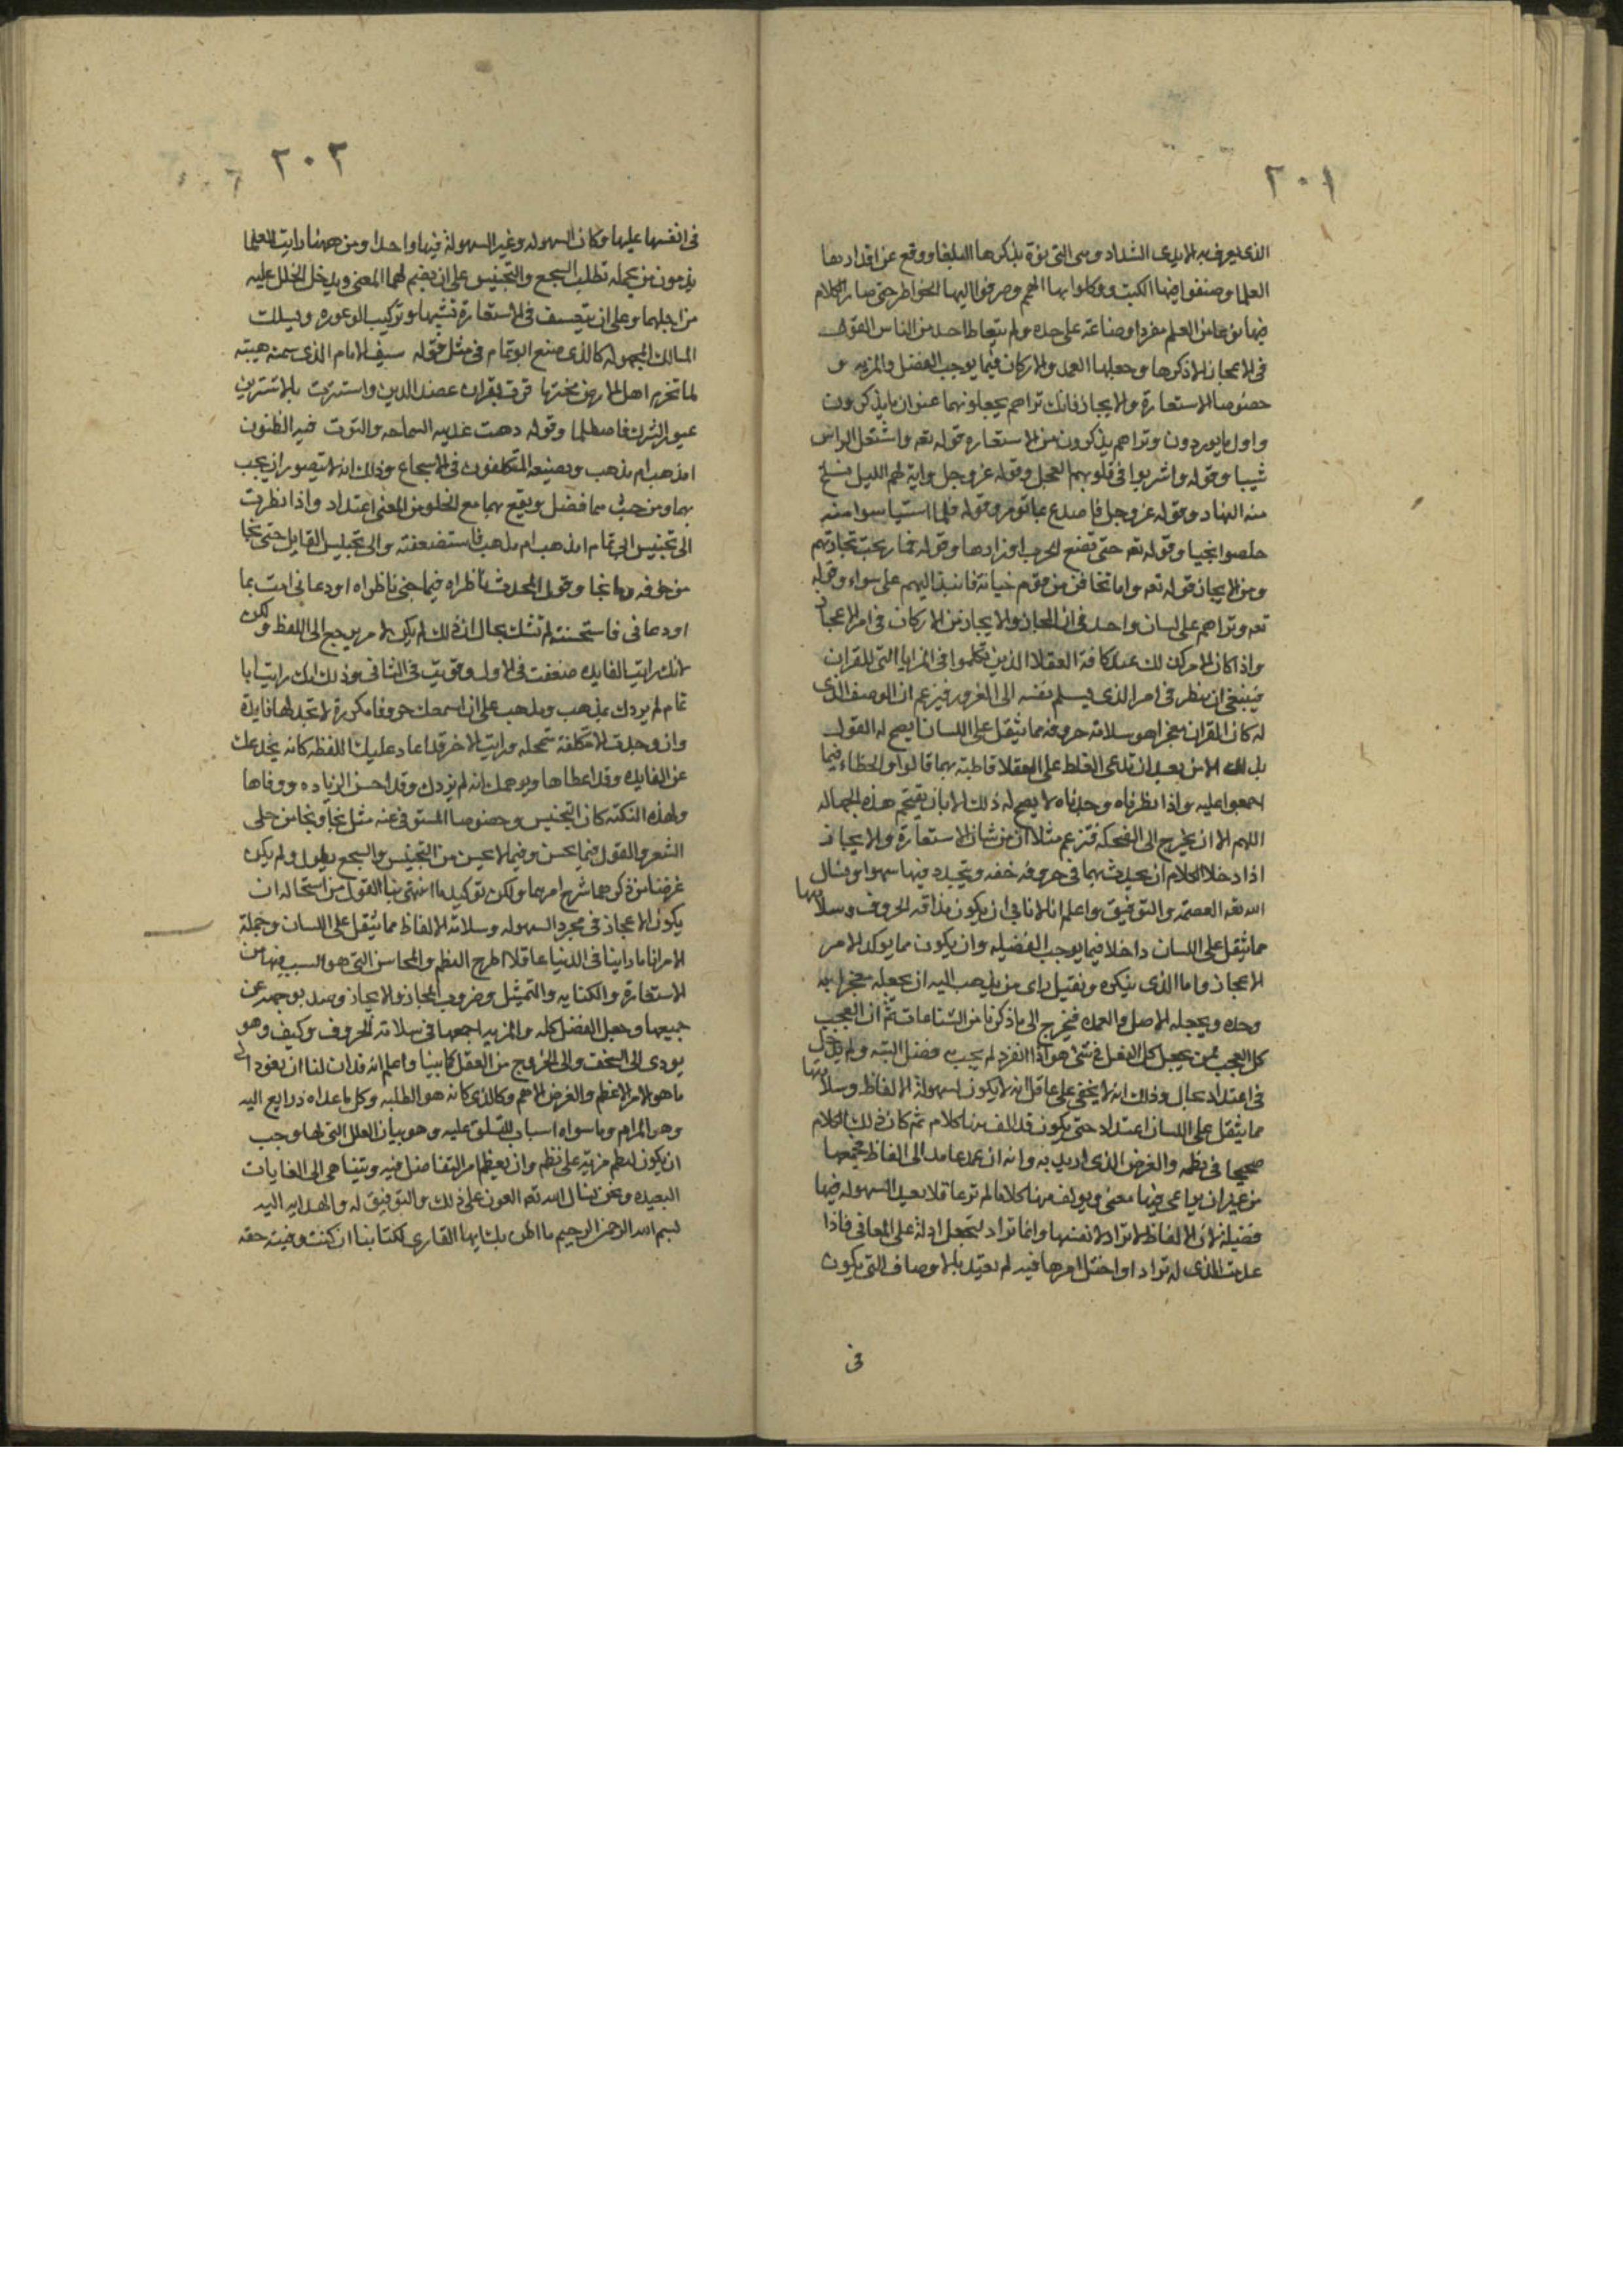 ٢٠١
الذى يعرف به الايدى الشداد وهى التى نوه بذكرها البلغا ووقع عن اقدارها
العلما وصنفوا فيها الكتب ووكلوا بها الهمم وصرفوا اليها الخواطر حتى صار الكلام
فيها نوعا من العلم مفردا وصناعة على حده ولم يتعاط احد من الناس القول
فى الاعجاز الا ذكرها وجعلها العمد والاركان فيما يوجب الفضل والمزيه و
خصوصا الاستعارة والايجاز فانك تراهم يجعلونهما عنوان ما يذكرون
واول ما يوردون وتراهم يذكرون من الاستعاره قوله تعه واشتعل الراس
شيبا وقوله واشربوا فى قلوبهم العجل وقوله عز وجل واية لهم الليل نسلخ
منه النهار وقوله عز وجل فاصدع بما تومر وقوله فلما استياسوا منه
خلصوا نجيا وقوله تعه حتى تضع الحرب اوزارها وقوله فما ربحت تجارتهم
ومن الايجاز قوله تعه واما تخافن من قوم خيانة فانبذ اليهم على سواء وقوله
تعه وتراهم على لسان واحد فى ان المجاز والايجاز من الاركان فى امر الاعجاز
واذا كان الامر كذلك عند كافة العقلا الذين تكلموا فى المزايا التى للقران
فينبغى ان ينظر فى امر الذى يسلم نفسه الى الغرور فيزعم ان الوصف الذى
له كان القران معجزا هو سلامة حروفه مما يثقل على اللسان ايصح له القول
بذلك الا من بعد ان تدعى الغلط على العقلا قاطبة بهما قالوا والخطاء فيما
اجمعوا عليه واذا نظرناه وجدناه لا يصح له ذلك الا بان يقتحم هذه الجهاله
اللهم الا ان يخرج الى الضحكه فتزعم مثلا ان من شان الاستعارة والايجاز
اذا دخلا الكلام ان يحدث بهما فى حروفه خفه ويتجدد فيها سهوله ونسال
الله تعه العصمة والتوفيق واعلم انا لا نابى ان يكون مذاقه الحروف وسلامتها
مما يثقل على اللسان داخلا فيما يوجب الفضيله وان يكون مما يوكد الامر
الاعجاز واما الذى ننكره ونفيل راى من يذهب اليه ان يجعله معجزا به
وحده ويجعله الاصل والعمده فيخرج الى ما ذكرنا من الشناعات ثم ان العجب
كل العجب ممن يجعل كل الفضل فى شئ هو اذا انفرد لم يجب به فضل البته ولم يدخل
فى اعتداد بحال وذلك انه لا يخفى على عاقل انه لا يكون لسهولة الالفاظ وسلامتها
مما يثقل على اللسان اعتداد حتى يكون قد الف منها كلام ثم كان ذلك الكلام
صحيحا فى نظمه والغرض الذى اريد به وانه ان عمد عامد الى الفاظ فجمعها
من غير ان يراعى فيها معنى ويولف منها كلاما لم تر عاقلا يعد السهوله فيها
فضيلة لان الالفاظ لا تراد لانفسها وانما تراد لتجعل ادلة على المعانى فاذا
عدمت الذى له تراد او اختل امرها فيه لم يعتد بالاوصاف التى يكون
فى
٢٠٢
فى انفسها عليها وكان السهوله وغير السهولة فيها واحدا ومن ههنا رايت العلما
يذمون من يحمله تطلب السجع والتجنيس على ان يضيم لهما المعنى ويدخل الخلل عليه
من اجلهما وعلى ان يتعسف فى الاستعارة بسببها وتركيب الوعوره ويسلك
المسالك المجهوله كالذى صنع ابو تمام فى مثل قوله سيف الامام الذى سمته هيبته
لما تخرم اهل الارض مخترما قرت بقران عضد الدين واستترت بالاشترين
عيون الشرك فاصطلما وقوله ذهبت بمذهبه السماحه والتوت فيه الظنون
امذهب ام مذهب ويصنعه المتكلفون فى الاسجاع وذلك انه لا يتصور ان يجب
بهما ومن حيث هما فضل ويقع بهما مع الخلو من المعنى اعتداد واذا نظرت
الى تجنيس ابى تمام امذهب ام مذهب فاستضعفته والى تجنيس القايل حتى نجا
من خوفه وما نجا وقول المحدث ناظراه فيما جنى ناظراه او دعانى امت بما
اودعانى فاستحسنته لم تشك بحال ان ذلك لم يكن لامر يرجع الى اللفظ ولكن
لانك رايت الفايده ضعفت فى الاول وقويت فى الثانى وذلك انك رايت ابا
تمام لم يزدك بمذهب ومذهب على ان اسمعك حروفا مكررة لا تجد لها فايدة
وان وجدت الا متكلفة متمحله ورايت الاخر قد اعاد عليك اللفظه كانه يخدعك
عن الفايده وقد اعطاها ويوهمك انه لم يزدك وقد احسن الزياده ووفاها
ولهذه النكته كان التجنيس وخصوصا المستوفى منه مثل نجا ونجا من حلى
الشعر والقول فيما يحسن وفيما لا يحسن من التجنيس والسجع يطول ولم يكن
غرضنا من ذكرهما شرح امرهما ولكن توكيد ما انتهى بنا القول من استحاله ان
يكون الاعجاز فى مجرد السهوله وسلامة الالفاظ مما يثقل على اللسان وجملة
الامر انا ما راينا فى الدنيا عاقلا اطرح النظم والمحاسن التى هو السبب فيها من
الاستعارة والكنايه والتمثيل وضروب المجاز والايجاز وصد بوجهه عن
جميعها وجعل الفضل كله والمزيه اجمعها فى سلامة الحروف وكيف وهو
يودى الى السخف والى الخروج من العقل كما بينا واعلم انه قد ان لنا ان نعود الى
ما هو الامر الاعظم والغرض الاهم وكالذى كانه هو الطلبه وكل ما عداه ذرايع اليه
وهو المرام وما سواه اسباب للتسلق عليه وهو بيان العلل التى لها وجب
ان يكون لنظم مزيته على نظم وان يعظم امر التفاضل فيه ويتناهى الى الغايات
البعيده ونحن نسال الله تعه العون على ذلك والتوفيق له والهدايه اليه
بسم الله الرحمن الرحيم ما اظن بك ايها القارى لكتابنا ان كنت وفيته حقه